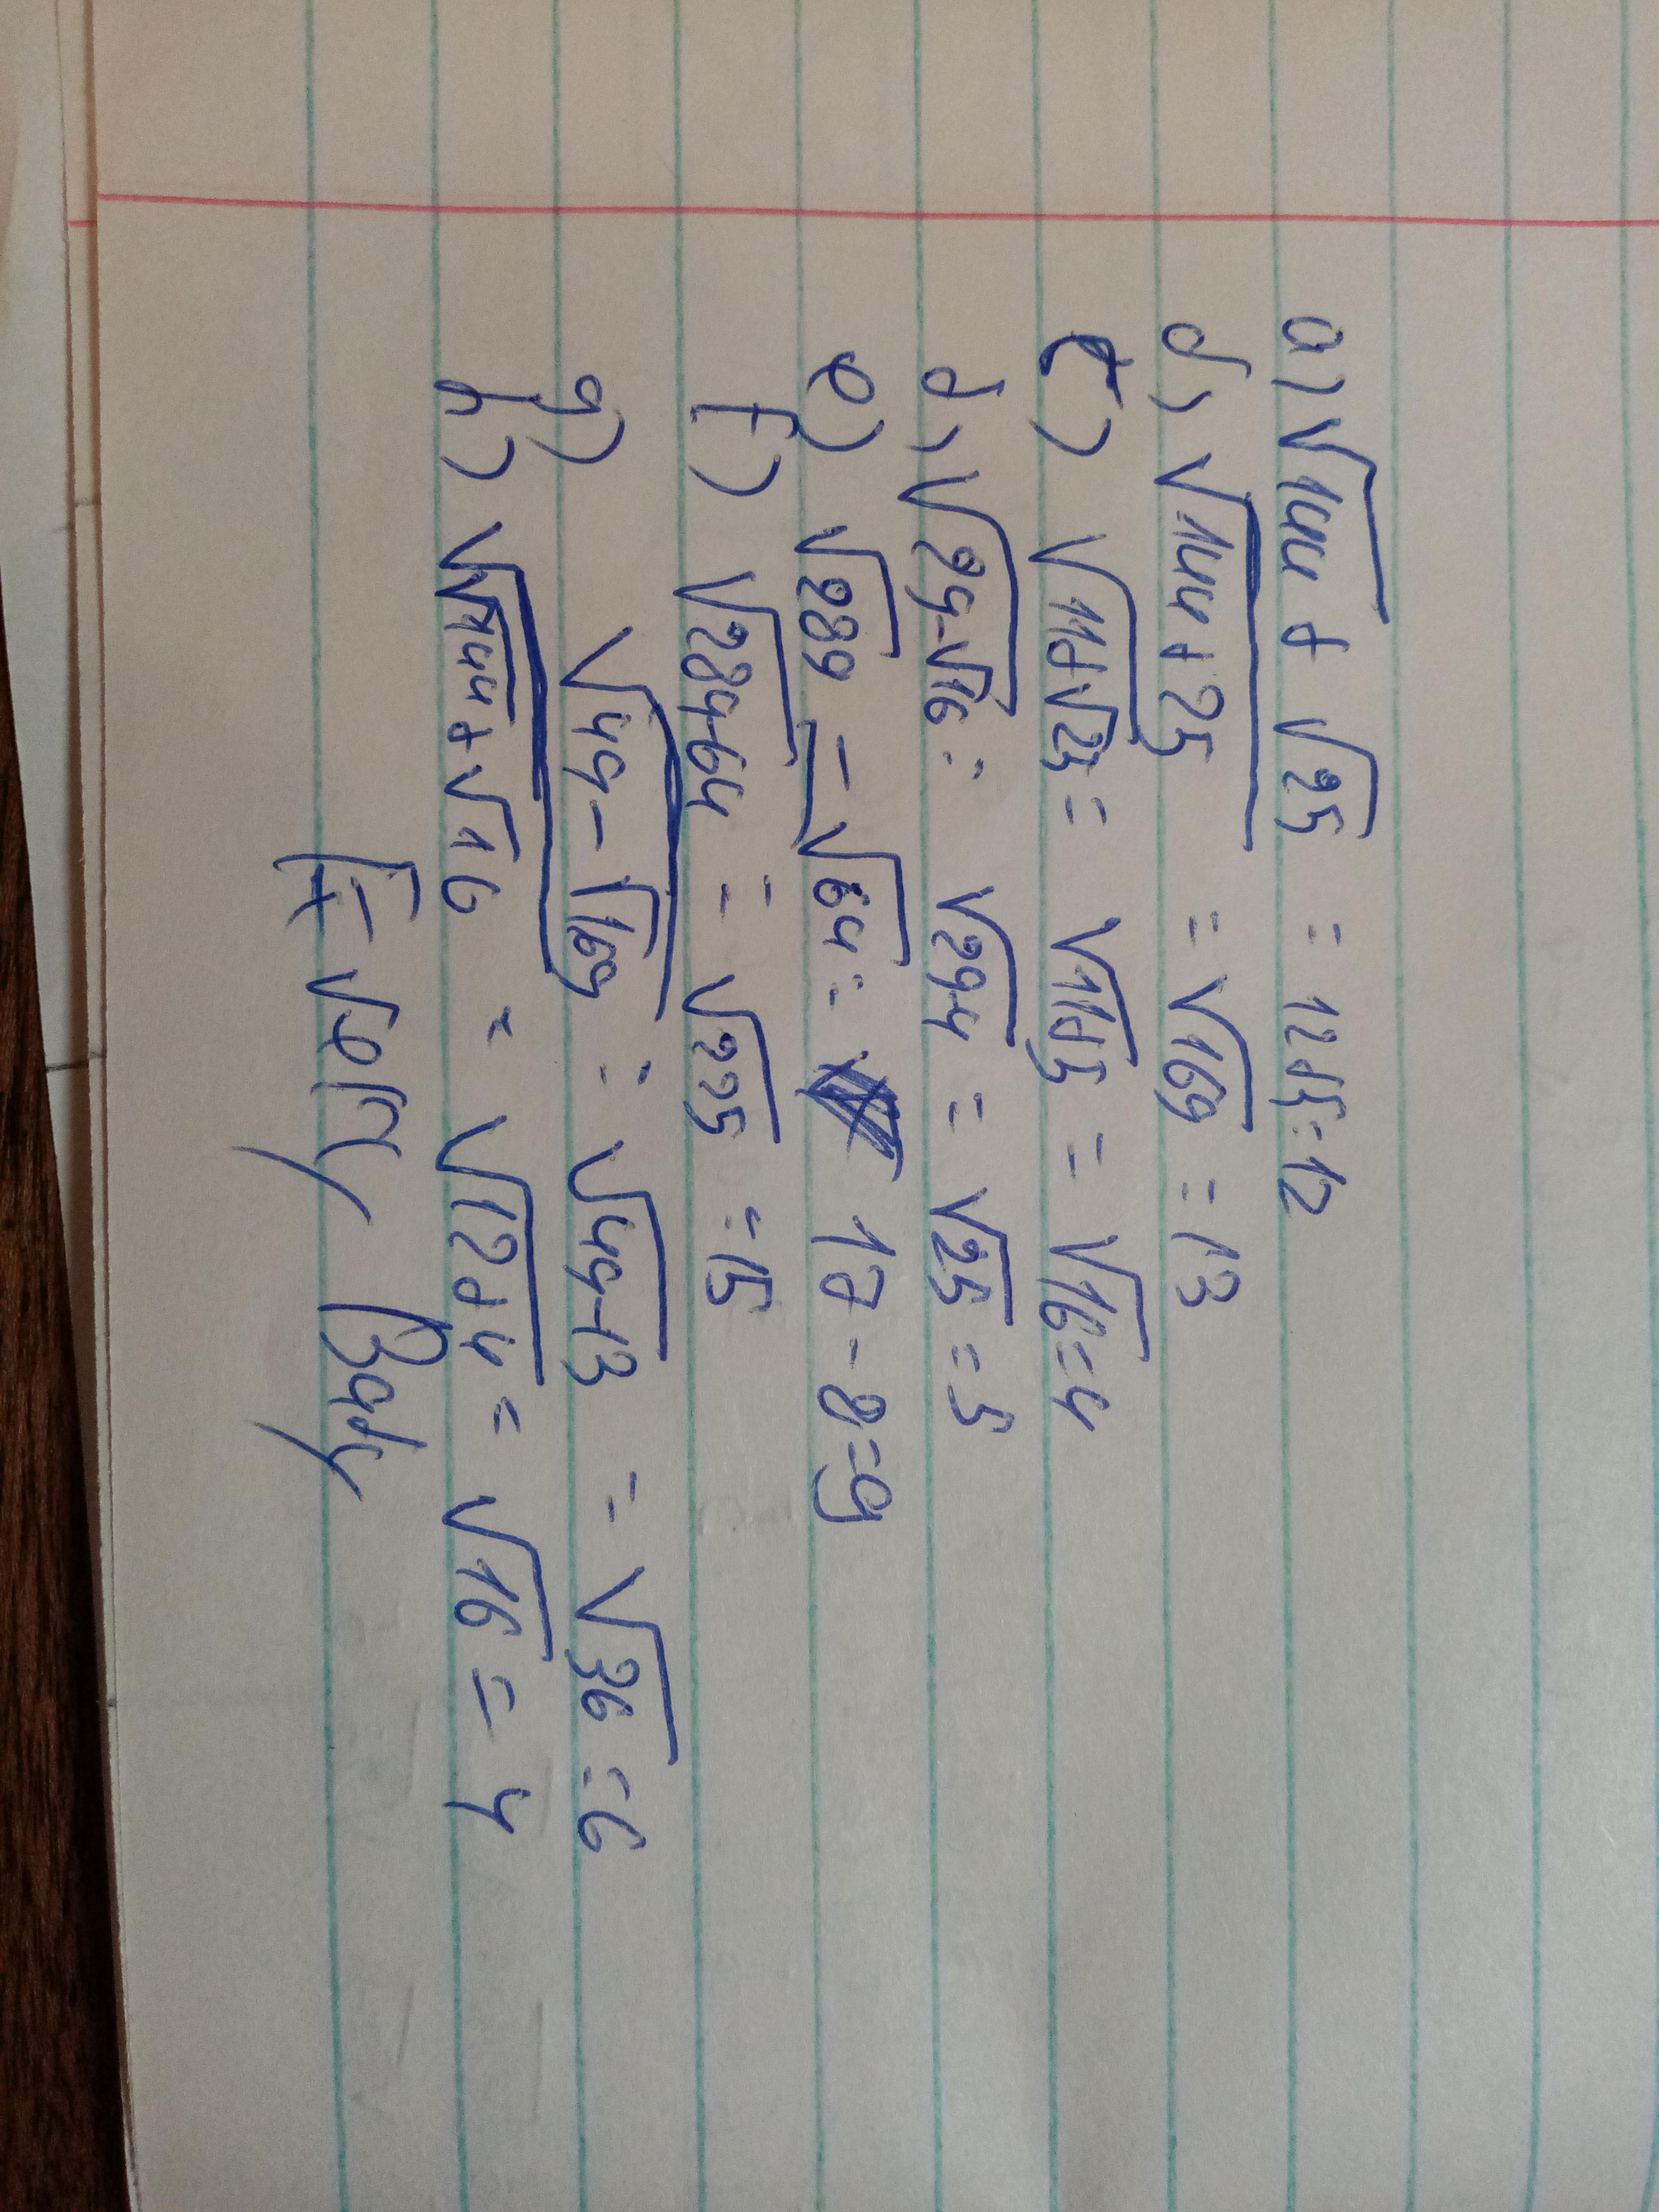 a) √144 + √25 = 12+5=17
b) √144+25 = √169 = 13
c) √11+√25 = √11+5 = √16=4
d) √29-√16 = √29-4 = √25=5
e) √289 - √64 = 17-8=9
f) √289-64 = √225 =15
g) √49-√169 = √49-13 = √36=6
h) √√144+√16 = √12+4 = √16=4
Every Body